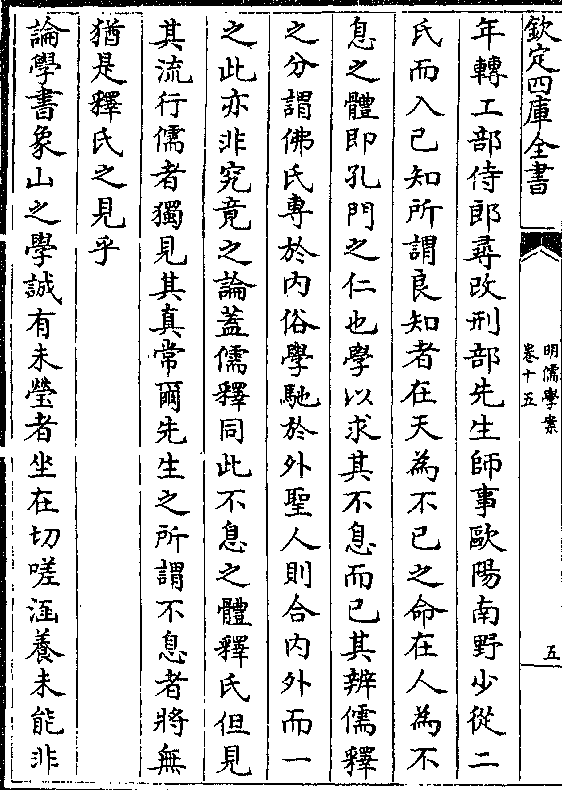 欽定四庫全書
明儒學案
卷十五
五
年轉工部侍郎尋改刑部先生師事歐陽南野少從二
氏而入已知所謂良知者在天為不已之命在人為不
息之體即孔門之仁也學以求其不息而已其辨儒釋
之分謂佛氏專於內俗學馳於外聖人則合內外而一
之此亦非究竟之論蓋儒釋同此不息之體釋氏但見
其流行儒者獨見其真常爾先生之所謂不息者將無
猶是釋氏之見乎
論學書象山之學誠有未瑩者坐在切嗟涵養未能非